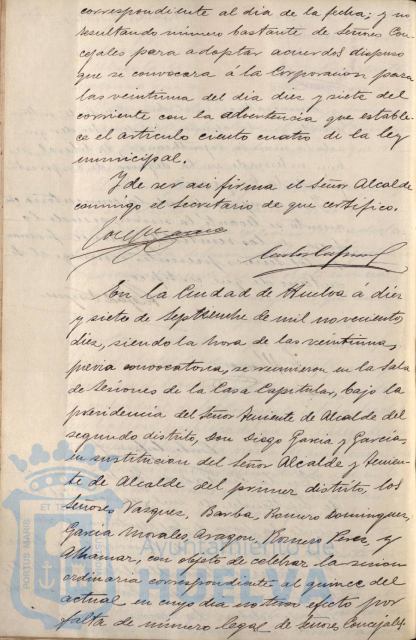 correspondiente al dia de la fecha; y no
resultando número bastante de señores Con-
cejales para adoptar acuerdos dispuso
que se convocara á la Corporacion para
las veintiuna del dia diez y siete del
corriente con la advertencia que estable-
ce el artículo ciento cuatro de la ley
municipal.
Y de ser asi firma el Señor Alcalde
conmigo el Secretario de que certifico.
En la Ciudad de Huelva á diez
y siete de Septiembre de mil novecientos
diez, siendo la hora de las veintiuna,
previa convocatoria, se reunieron en la Sala
de Sesiones de la Casa Capitular, bajo la
presidencia del Señor Teniente de Alcalde del
segundo distrito, Don Diego Garcia y Garcia,
en sustitucion del Señor Alcalde y Tenien-
te de Alcalde del primer distrito, los
Señores Vazquez, Barba, Romero Dominguez,
Garcia Morales, Aragon, Romero Perez y
Alhamar, con objeto de celebrar la sesion
ordinaria correspondiente al quince del
actual en cuyo dia no tuvo efecto por
falta de número legal de Señores Concejales
Ayuntamiento de
HUELVA
PORTUS MARIS
ET TE